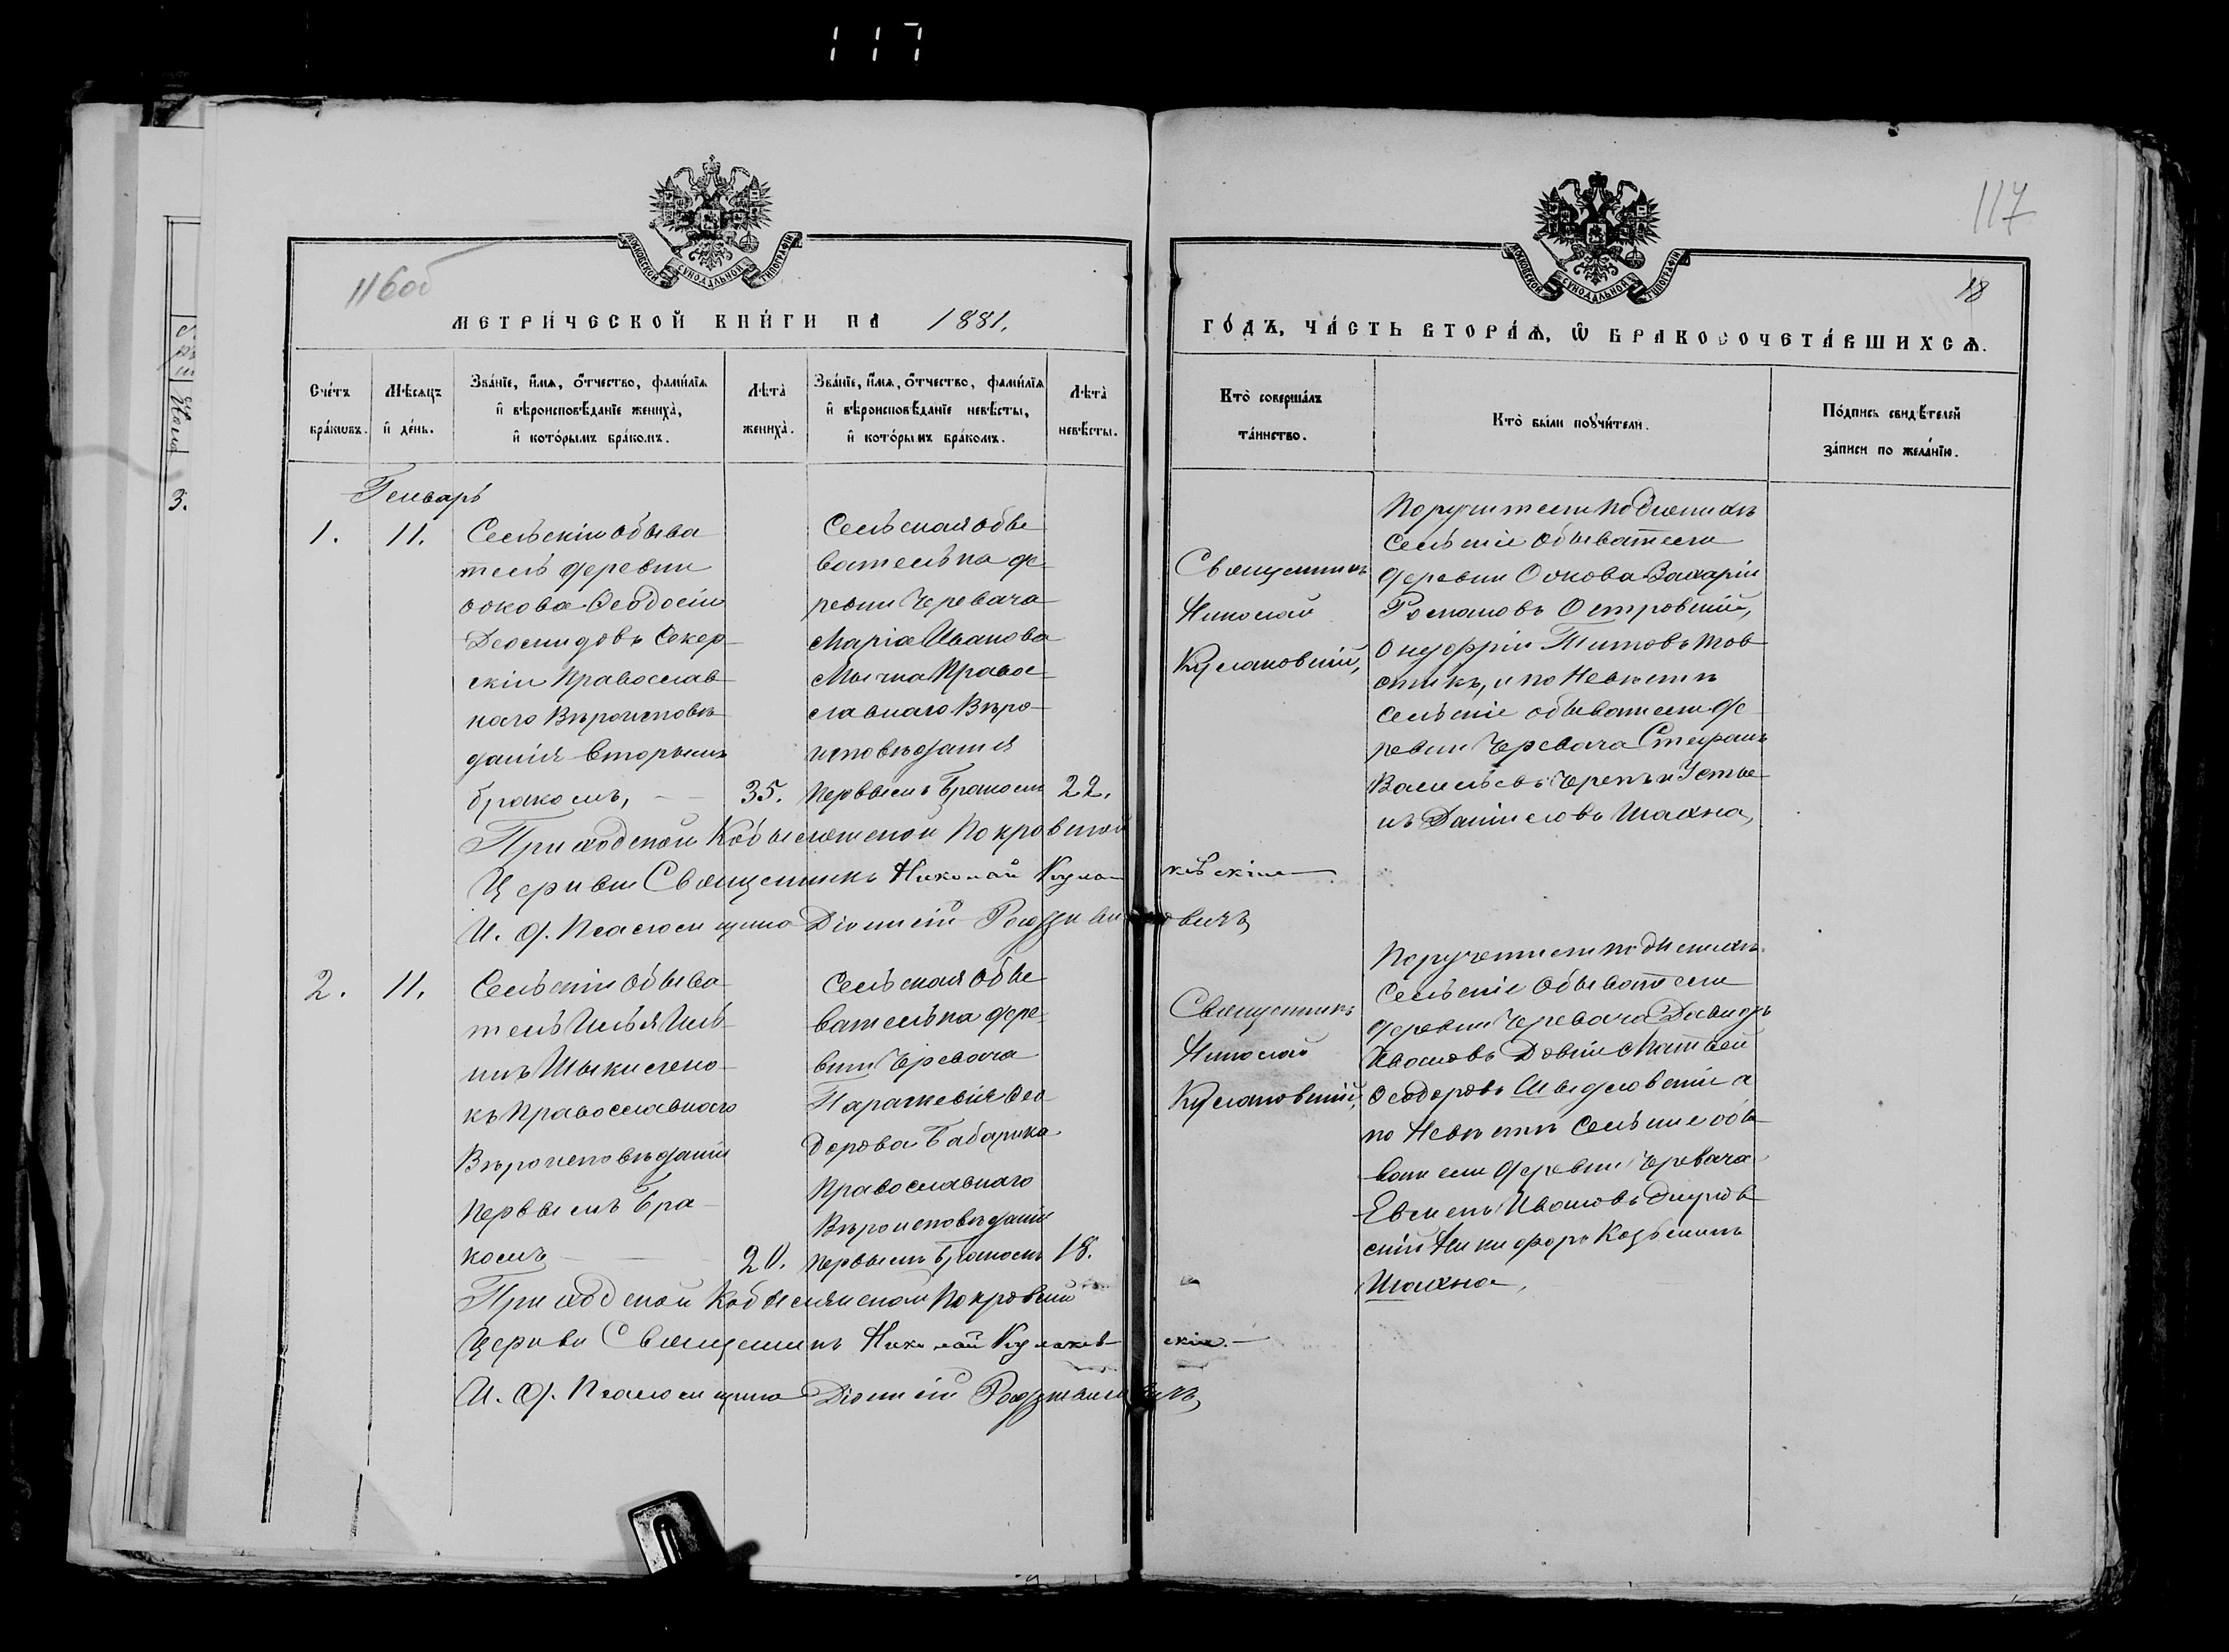 117
117
116об
18
МОСКОВСКОЙ СѴНОДАЛЬНОЙ ТИПОГРАФІИ
МОСКОВСКОЙ СѴНОДАЛЬНОЙ ТИПОГРАФІИ
МЕТРИ́ЧЕСКОЙ КНИ́ГИ НА 1881.
ГО́ДЪ, ЧА́СТЬ ВТОРА́Я, Ѡ БРАКОСОЧЕТА́ВШИХСЯ.
Сче́тъ бра́кωвъ.
Мѣ́сяцъ и҆ де́нь.
Зва́нїе, и҆́мя, ѻ҆́тчество, фами́лїя
и҆ вѣроисповѣ́данїе жениха̀,
и҆ кото́рымъ бра́комъ.
Лѣта̀ жениха̀.
Зва́нїе, и҆́мя, ѻ҆́тчество, фами́лїя
и҆ вѣроисповѣ́данїе невѣ́сты,
и҆ кото́рымъ бра́комъ.
Лѣта̀ невѣ́сты.
Кто̀ соверша́лъ
та́инство.
Кто̀ бы́ли пору́чители.
По́дпись свидѣ́телей
за́писи по жела́нїю.
Генварь
1.
11.
Сельскій Обыва
тель деревни
Ѳеодосій
скій Православ
наго Вѣроисповѣ
данія Вторымъ
бракомъ,
35.
Сельская Обы
вательна де
ревни Черевача
Марія Иванова
Православнаго Вѣро
исповѣданія
Первымъ Бракомъ
22.
Священникъ
Николай
Кулаковскій,
Поручители по Женихѣ
Сельскіе Обыватели
деревни Захарій
Романовъ Островскій,
Онуфрій Титовъ Тов
стикъ, и по Невѣстѣ
Сельскіе обыватели де
ревни Черевача Стефанъ
Васильевъ Черепъ и Усти
нъ Даниловъ Шахна,
Приходской Покровской
Церкви Священникъ Николай Кулаковскій
И. д. Псаломщика Діонисій
2.
11.
Сельскій Обыва
тель Илья Иль
инъ
къ Православнаго
Вѣроисповѣданія
Первымъ Бра
комъ
20.
Сельская Обы
вательна дере
вни Черевача
Параскевія Ѳео
дорова Бабарика
Православнаго
Вѣроисповѣданія
Первымъ Бракомъ
18.
Священникъ
Николай
Кулаковскій,
Поручители по Женихѣ
Сельскіе Обыватели
деревни Черевача Давидъ
Ивановъ Матвей
Ѳеодоровъ а
по Невѣстѣ Сельскіе обы
ватели деревни Черевача
Ивановъ
скій Никифоръ Козьминъ
Шахна,
Приходской Покровской
Церкви Священникъ Николай Кулаковскій.
И. д. Псаломщика Діонисій
3.